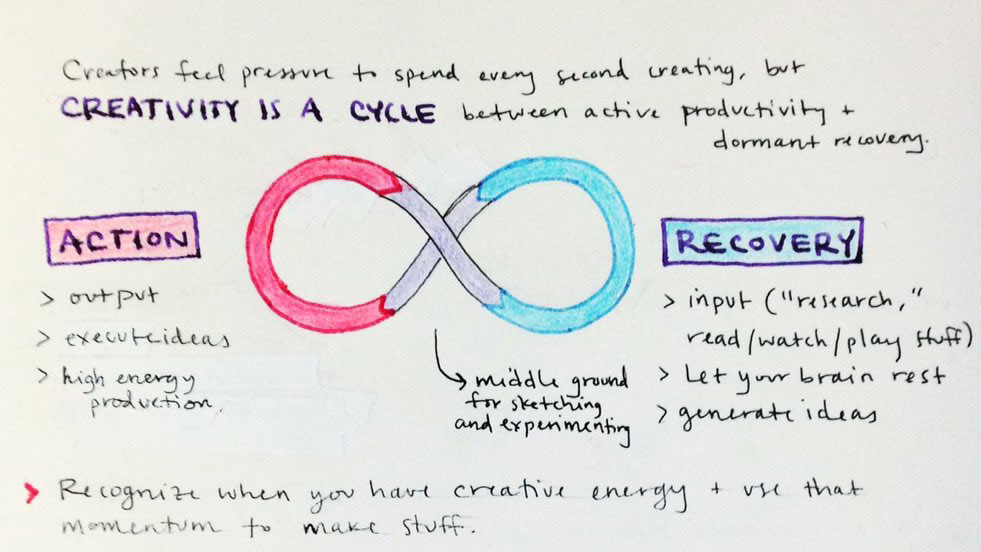 Creators feel pressure to spend every second creating, but
CREATIVITY IS A CYCLE between active productivity +
dormant recovery.
ACTION
> output
> execute ideas
> high energy
production.
RECOVERY
> input ("research,"
read/watch/play stuff)
> Let your brain rest
> generate ideas
middle ground
for sketching
and experimenting
> Recognize when you have creative energy + use that
momentum to make stuff.